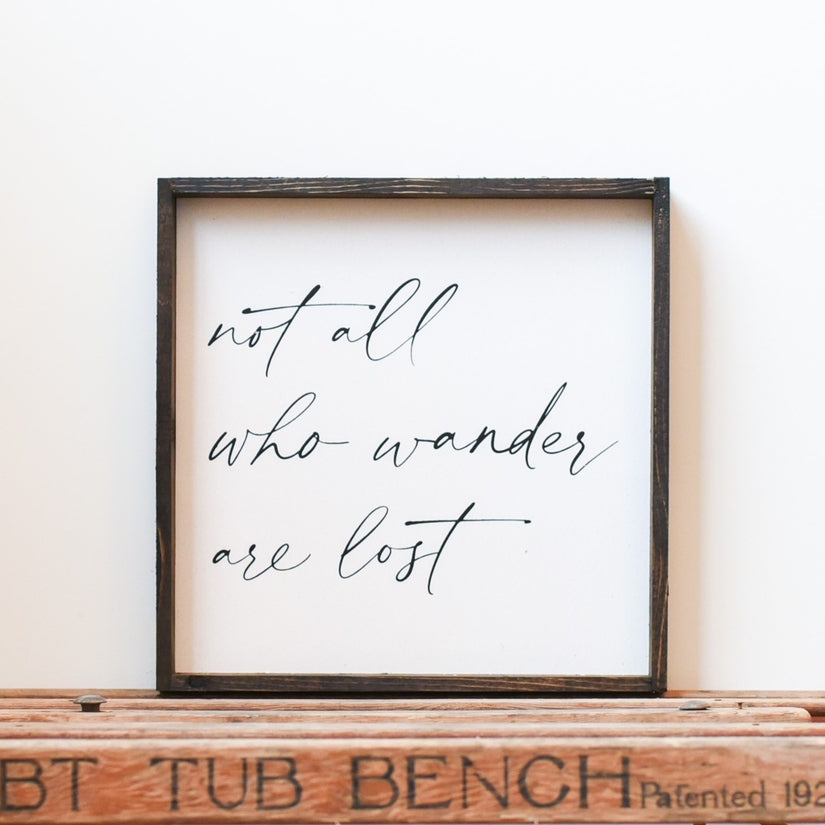 not all
who wander
are lost
BT TUB BENCH Patented 192